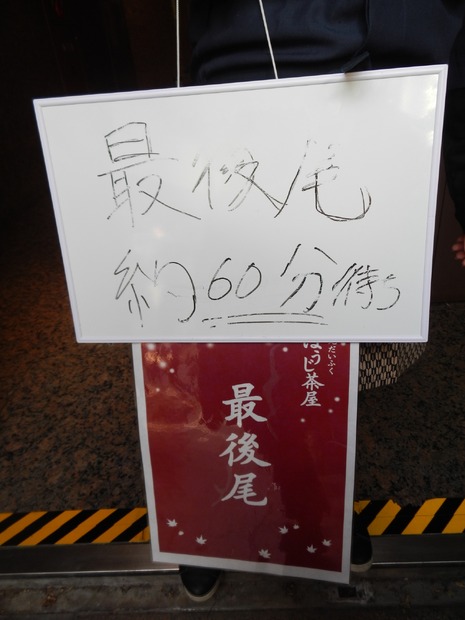 最後尾
約60分待ち
だいふく
ほうじ茶屋
最後尾